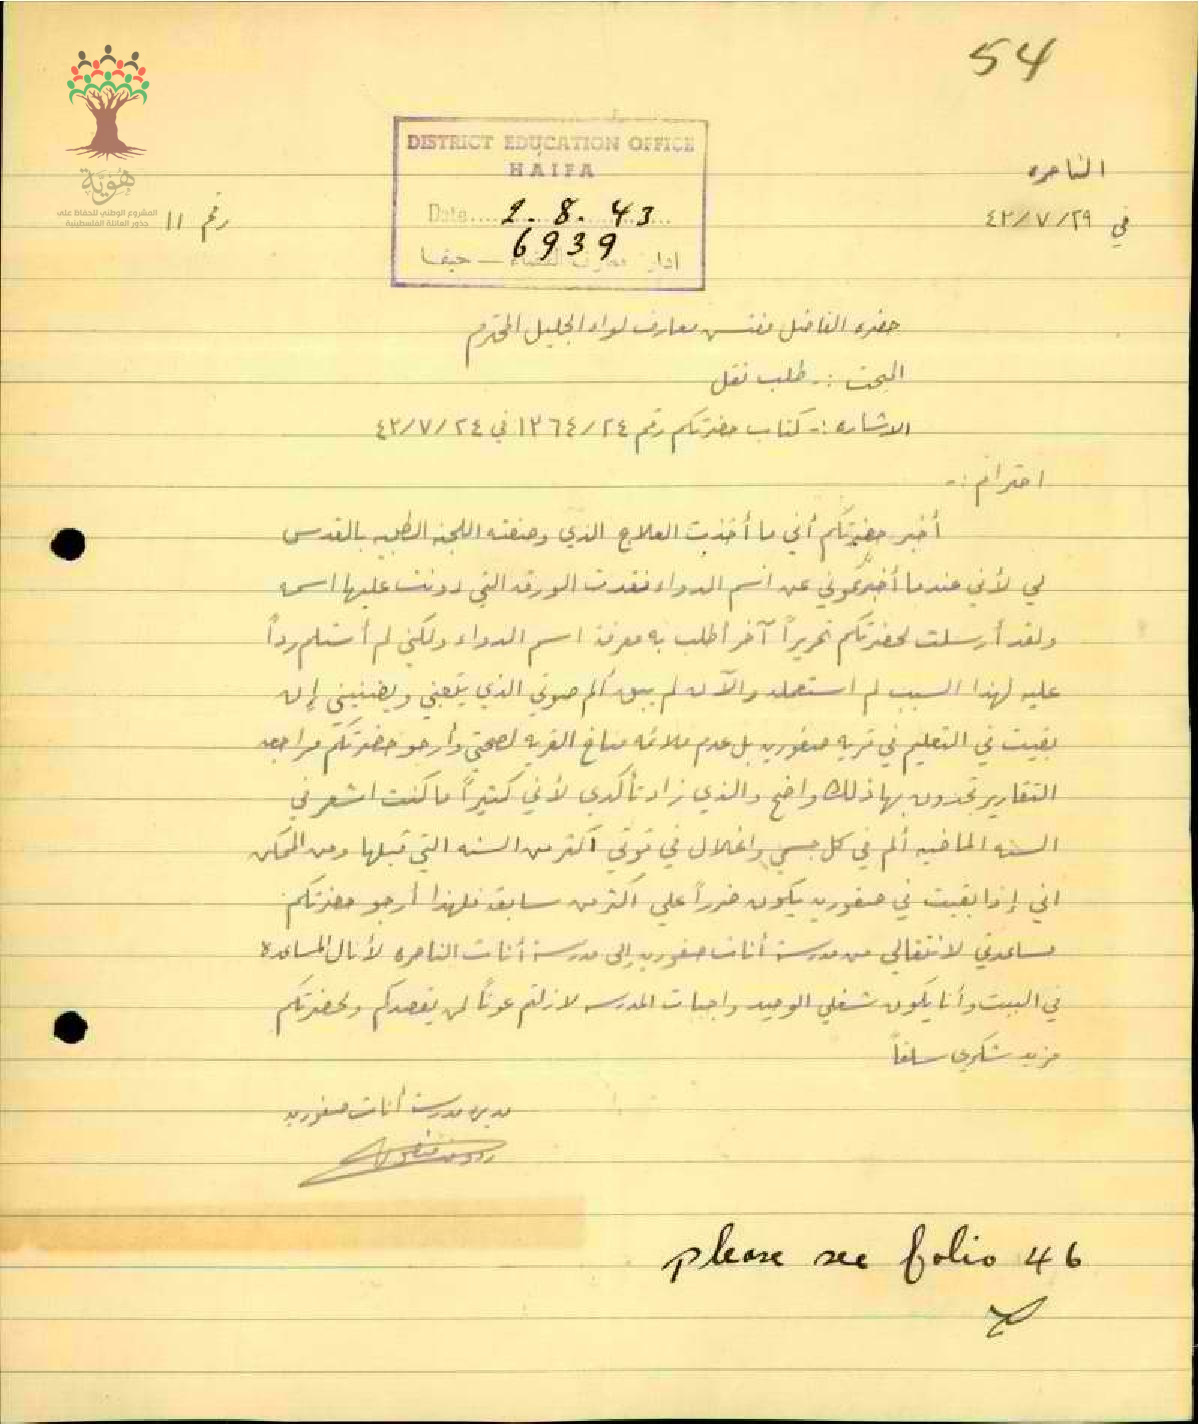 54
هوية
المشروع الوطني للحفاظ على
جذور العائلة الفلسطينية
DISTRICT EDUCATION OFFICE
HAIFA
Date.... 2. 8. 43
6939
ادارة معارف القضاء — حيفا
الناصره
في ٤٣/٧/٢٩
رقم ١١
حضره الفاضل مفتش معارف لواء الجليل المحترم
البحث :- طلب نقل
الاشاره :- كتاب حضرتكم رقم ١٣٦٤/٢٤ في ٤٣/٧/٢٤
احترام :-
أخبر حضرتكم أني ما أخذت العلاج الذي وصفته اللجنه الطبيه بالقدس
لي لأني عندما أخبرتموني عن اسم الدواء فقدت الورقه التي دونت عليها اسمه
ولقد أرسلت لحضرتكم تحريراً آخر أطلب به معرفة اسم الدواء ولكني لم أستلم رداً
عليه لهذا السبب لم استعمله والآن لم يبق ألم صوتي الذي يتعبني ويضنيني إن
بقيت في التعليم في قرية صفوريه بل عدم ملائمة مناخ القريه لصحتي وأرجو حضرتكم مراجعه
التقارير تجدون بها ذلك واضح والذي زاد تأكدي لأني كثيراً ما كنت اشعر في
السنه الماضيه ألم في كل جسمي وانحلال في قوتي اكثر من السنه التي قبلها ومن الممكن
اني إذا بقيت في صفوريه يكون ضرراً علي اكثر من سابقه فلهذا أرجو حضرتكم
مساعدتي لانتقالي من مدرسة أناث صفوريه إلى مدرسة أناث الناصره لأنال المساعدة
في البيت وأنا يكون شغلي الوحيد واجبات المدرسه لا زلتم عوناً لمن يقصدكم ولحضرتكم
مزيد شكري سلفاً
مديره مدرسة أناث صفوريه
please see folio 46